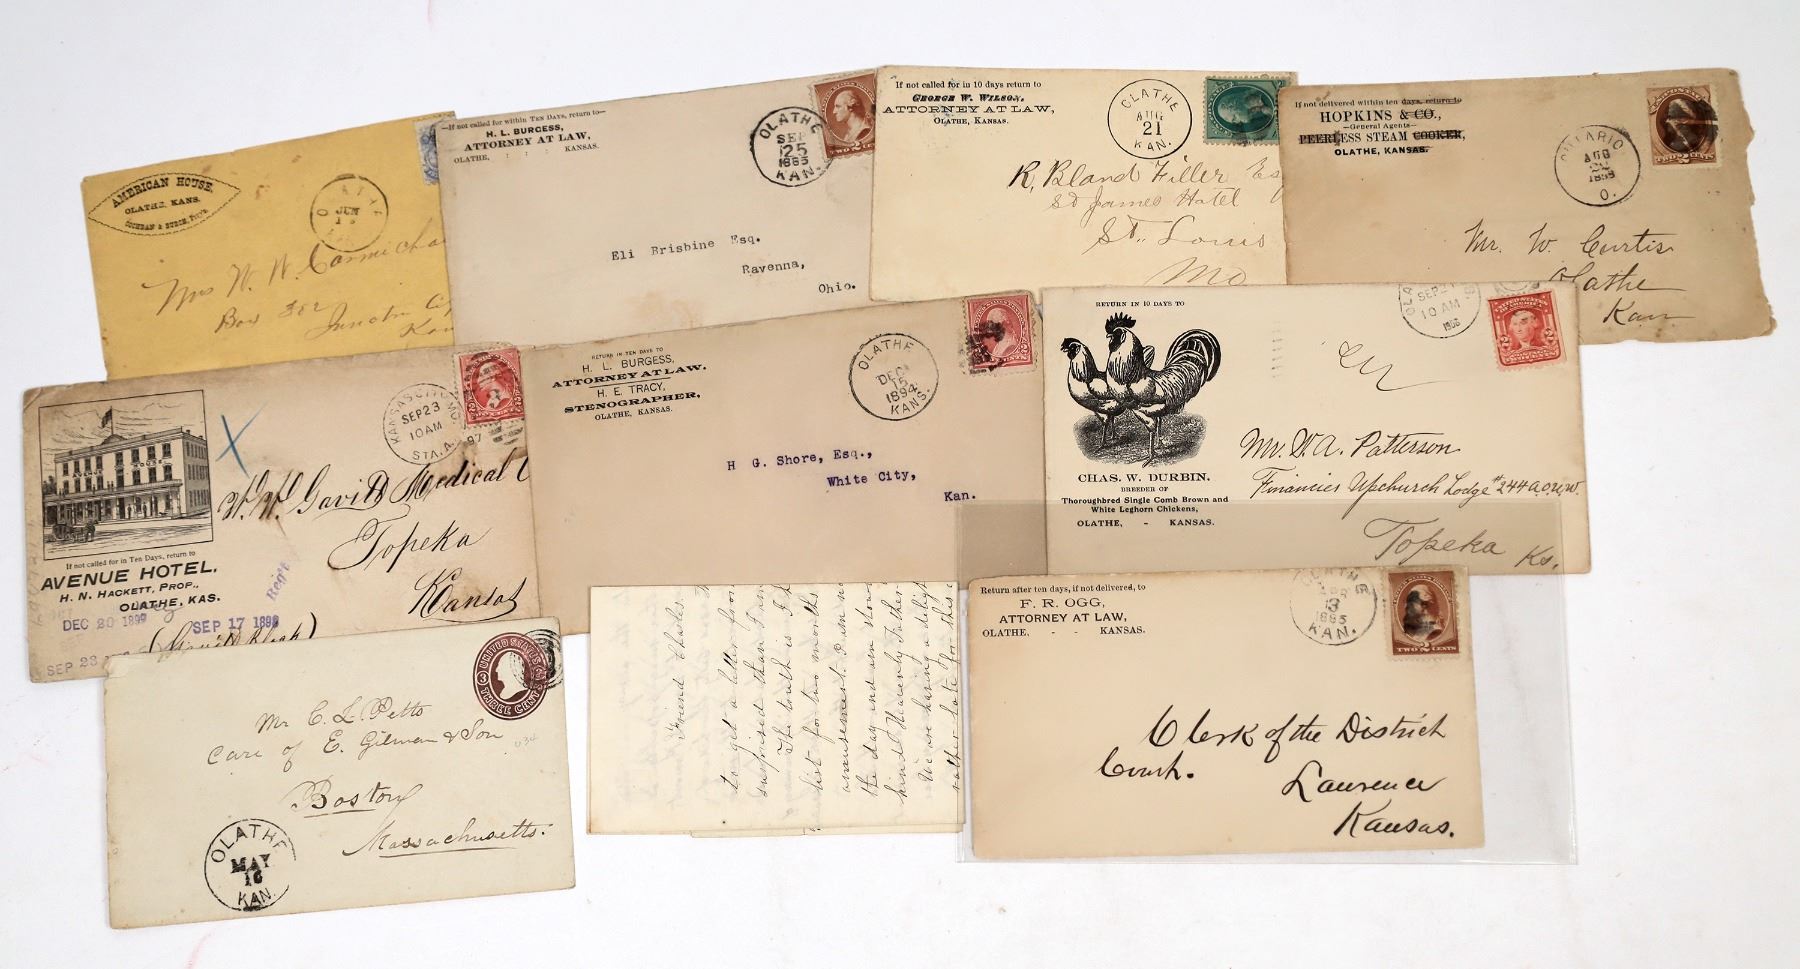 AMERICAN HOUSE,
OLATHE, KANS.
JUN
Mrs W. W. Carmicha
Box 302
Junction City
Kan
If not called for within TEN DAYS, return to
H. L. BURGESS,
ATTORNEY AT LAW,
OLATHE, : : : KANSAS.
OLATHE
SEP
25
1885
KAN.
TWO CENTS
Eli Brisbine Esq.
Ravenna,
Ohio.
If not called for in 10 days return to
GEORGE W. WILSON,
ATTORNEY AT LAW,
OLATHE, KANSAS.
OLATHE
AUG
21
KAN.
R. Bland Filler Es
St James Hotel
St. Louis
Mo
If not delivered within ten days, return to
HOPKINS & CO.,
General Agents
PEERLESS STEAM COOKER,
OLATHE, KANSAS.
ONTARIO
AUG
22
O.
TWO CENTS
Mr. W. Curtis
Olathe
Kan
AVENUE HOUSE
If not called for in Ten Days, return to
AVENUE HOTEL,
H. N. HACKETT, PROP.,
OLATHE, KAS.
DEC 20 1899
SEP 17 1898
SEP 23
KANSAS CITY, MO.
SEP 23
10 AM
97
STA. A.
X
W. W. Gavitts Medical C
Topeka
Kansas
RETURN IN TEN DAYS TO
H. L. BURGESS,
ATTORNEY AT LAW.
H. E. TRACY,
STENOGRAPHER,
OLATHE, KANSAS.
OLATHE
DEC
15
1894
KANS.
H G. Shore, Esq.,
White City,
Kan.
RETURN IN 10 DAYS TO
CHAS. W. DURBIN.
BREEDER OF
Thoroughbred Single Comb Brown and
White Leghorn Chickens,
OLATHE, - KANSAS.
OLA
SEP 21
10 AM
1906
Mr. W. A. Patterson
Financier Upchurch Lodge #244 A.O.U.W.
Topeka Ks.
UNITED STATES
3
THREE CENTS
Mr C. L. Petts
Care of E. Gilman & Son
U34
Boston
Massachusetts.
OLATHE
MAY
16
KAN.
Friend Charles.
to get a letter from
surprised than I
The truth is I
list for two months
amusement. I am
the day and am thou
kind Heavenly Father
We are having a delight
rather late for this
Return after ten days, if not delivered, to
F. R. OGG,
ATTORNEY AT LAW,
OLATHE, - - KANSAS.
OLATHE
APR
3
1885
KAN.
TWO CENTS
Clerk of the District
Court.
Lawrence
Kansas.